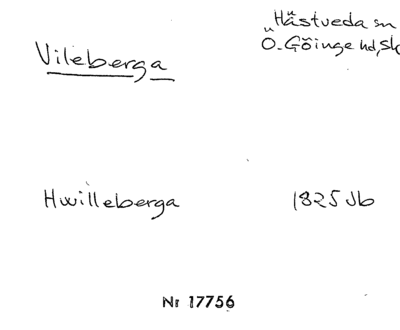 Vileberga
Hästveda sn
Ö. Göinge hd, Sk
Hwilleberga
1825 Jb
Nr 17756